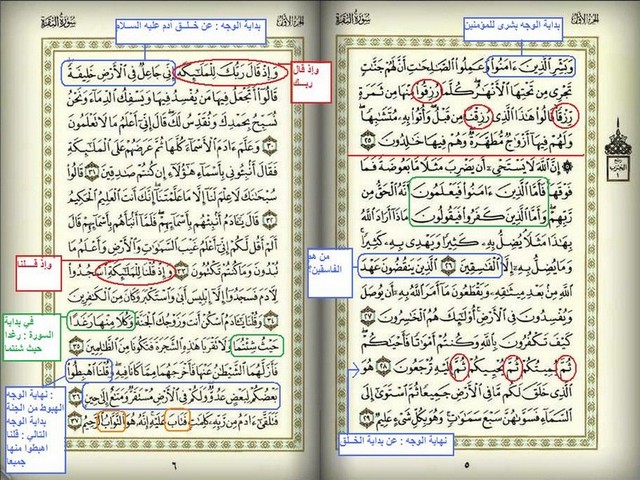 الجزء الأول
سورة البقرة
بداية الوجه بشرى للمؤمنين
وَبَشِّرِ الَّذِينَ ءَامَنُوا وَعَمِلُوا الصَّٰلِحَٰتِ أَنَّ لَهُمْ جَنَّٰتٍ
تَجْرِي مِن تَحْتِهَا الْأَنْهَٰرُ كُلَّمَا رُزِقُوا مِنْهَا مِن ثَمَرَةٍ
رِّزْقًا قَالُوا هَٰذَا الَّذِي رُزِقْنَا مِن قَبْلُ وَأُتُوا بِهِ مُتَشَٰبِهًا
وَلَهُمْ فِيهَا أَزْوَٰجٌ مُّطَهَّرَةٌ وَهُمْ فِيهَا خَٰلِدُونَ ٢٥
۞ إِنَّ اللَّهَ لَا يَسْتَحْيِ أَن يَضْرِبَ مَثَلًا مَّا بَعُوضَةً فَمَا
فَوْقَهَا فَأَمَّا الَّذِينَ ءَامَنُوا فَيَعْلَمُونَ أَنَّهُ الْحَقُّ مِن
رَّبِّهِمْ وَأَمَّا الَّذِينَ كَفَرُوا فَيَقُولُونَ مَاذَا أَرَادَ اللَّهُ
بِهَٰذَا مَثَلًا يُضِلُّ بِهِ كَثِيرًا وَيَهْدِي بِهِ كَثِيرًا
وَمَا يُضِلُّ بِهِ إِلَّا الْفَٰسِقِينَ ٢٦ الَّذِينَ يَنقُضُونَ عَهْدَ
اللَّهِ مِن بَعْدِ مِيثَٰقِهِ وَيَقْطَعُونَ مَا أَمَرَ اللَّهُ بِهِ أَن يُوصَلَ
وَيُفْسِدُونَ فِي الْأَرْضِ أُولَٰئِكَ هُمُ الْخَٰسِرُونَ ٢٧
كَيْفَ تَكْفُرُونَ بِاللَّهِ وَكُنتُمْ أَمْوَٰتًا فَأَحْيَٰكُمْ
ثُمَّ يُمِيتُكُمْ ثُمَّ يُحْيِيكُمْ ثُمَّ إِلَيْهِ تُرْجَعُونَ ٢٨ هُوَ
الَّذِي خَلَقَ لَكُم مَّا فِي الْأَرْضِ جَمِيعًا ثُمَّ اسْتَوَىٰ إِلَى
السَّمَاءِ فَسَوَّىٰهُنَّ سَبْعَ سَمَٰوَٰتٍ وَهُوَ بِكُلِّ شَيْءٍ عَلِيمٌ ٢٩
ربع
الحزب
١
من هم
الفاسقين؟
نهاية الوجه : عن بداية الخلق
٥
الجزء الأول
سورة البقرة
بداية الوجه : عن خلق آدم عليه السلام
وَإِذْ قَالَ رَبُّكَ لِلْمَلَٰئِكَةِ إِنِّي جَاعِلٌ فِي الْأَرْضِ خَلِيفَةً
قَالُوا أَتَجْعَلُ فِيهَا مَن يُفْسِدُ فِيهَا وَيَسْفِكُ الدِّمَاءَ وَنَحْنُ
نُسَبِّحُ بِحَمْدِكَ وَنُقَدِّسُ لَكَ قَالَ إِنِّي أَعْلَمُ مَا لَا تَعْلَمُونَ
٣٠ وَعَلَّمَ ءَادَمَ الْأَسْمَاءَ كُلَّهَا ثُمَّ عَرَضَهُمْ عَلَى الْمَلَٰئِكَةِ
فَقَالَ أَنبِئُونِي بِأَسْمَاءِ هَٰؤُلَاءِ إِن كُنتُمْ صَٰدِقِينَ ٣١ قَالُوا
سُبْحَٰنَكَ لَا عِلْمَ لَنَا إِلَّا مَا عَلَّمْتَنَا إِنَّكَ أَنتَ الْعَلِيمُ الْحَكِيمُ
٣٢ قَالَ يَٰـَٔادَمُ أَنبِئْهُم بِأَسْمَائِهِمْ فَلَمَّا أَنبَأَهُم بِأَسْمَائِهِمْ قَالَ
أَلَمْ أَقُل لَّكُمْ إِنِّي أَعْلَمُ غَيْبَ السَّمَٰوَٰتِ وَالْأَرْضِ وَأَعْلَمُ مَا
تُبْدُونَ وَمَا كُنتُمْ تَكْتُمُونَ ٣٣ وَإِذْ قُلْنَا لِلْمَلَٰئِكَةِ اسْجُدُوا
لِءَادَمَ فَسَجَدُوا إِلَّا إِبْلِيسَ أَبَىٰ وَاسْتَكْبَرَ وَكَانَ مِنَ الْكَٰفِرِينَ
٣٤ وَقُلْنَا يَٰـَٔادَمُ اسْكُنْ أَنتَ وَزَوْجُكَ الْجَنَّةَ وَكُلَا مِنْهَا رَغَدًا
حَيْثُ شِئْتُمَا وَلَا تَقْرَبَا هَٰذِهِ الشَّجَرَةَ فَتَكُونَا مِنَ الظَّٰلِمِينَ ٣٥
فَأَزَلَّهُمَا الشَّيْطَٰنُ عَنْهَا فَأَخْرَجَهُمَا مِمَّا كَانَا فِيهِ وَقُلْنَا اهْبِطُوا
بَعْضُكُمْ لِبَعْضٍ عَدُوٌّ وَلَكُمْ فِي الْأَرْضِ مُسْتَقَرٌّ وَمَتَٰعٌ إِلَىٰ حِينٍ ٣٦
فَتَلَقَّىٰ ءَادَمُ مِن رَّبِّهِ كَلِمَٰتٍ فَتَابَ عَلَيْهِ إِنَّهُ هُوَ التَّوَّابُ الرَّحِيمُ ٣٧
وإذ قال
ربك
وإذ قلنا
في بداية
السورة : رغدا
حيث شئتما
نهاية الوجه :
الهبوط من الجنة
التالي : قلنا
اهبطوا منها
جميعا
٦